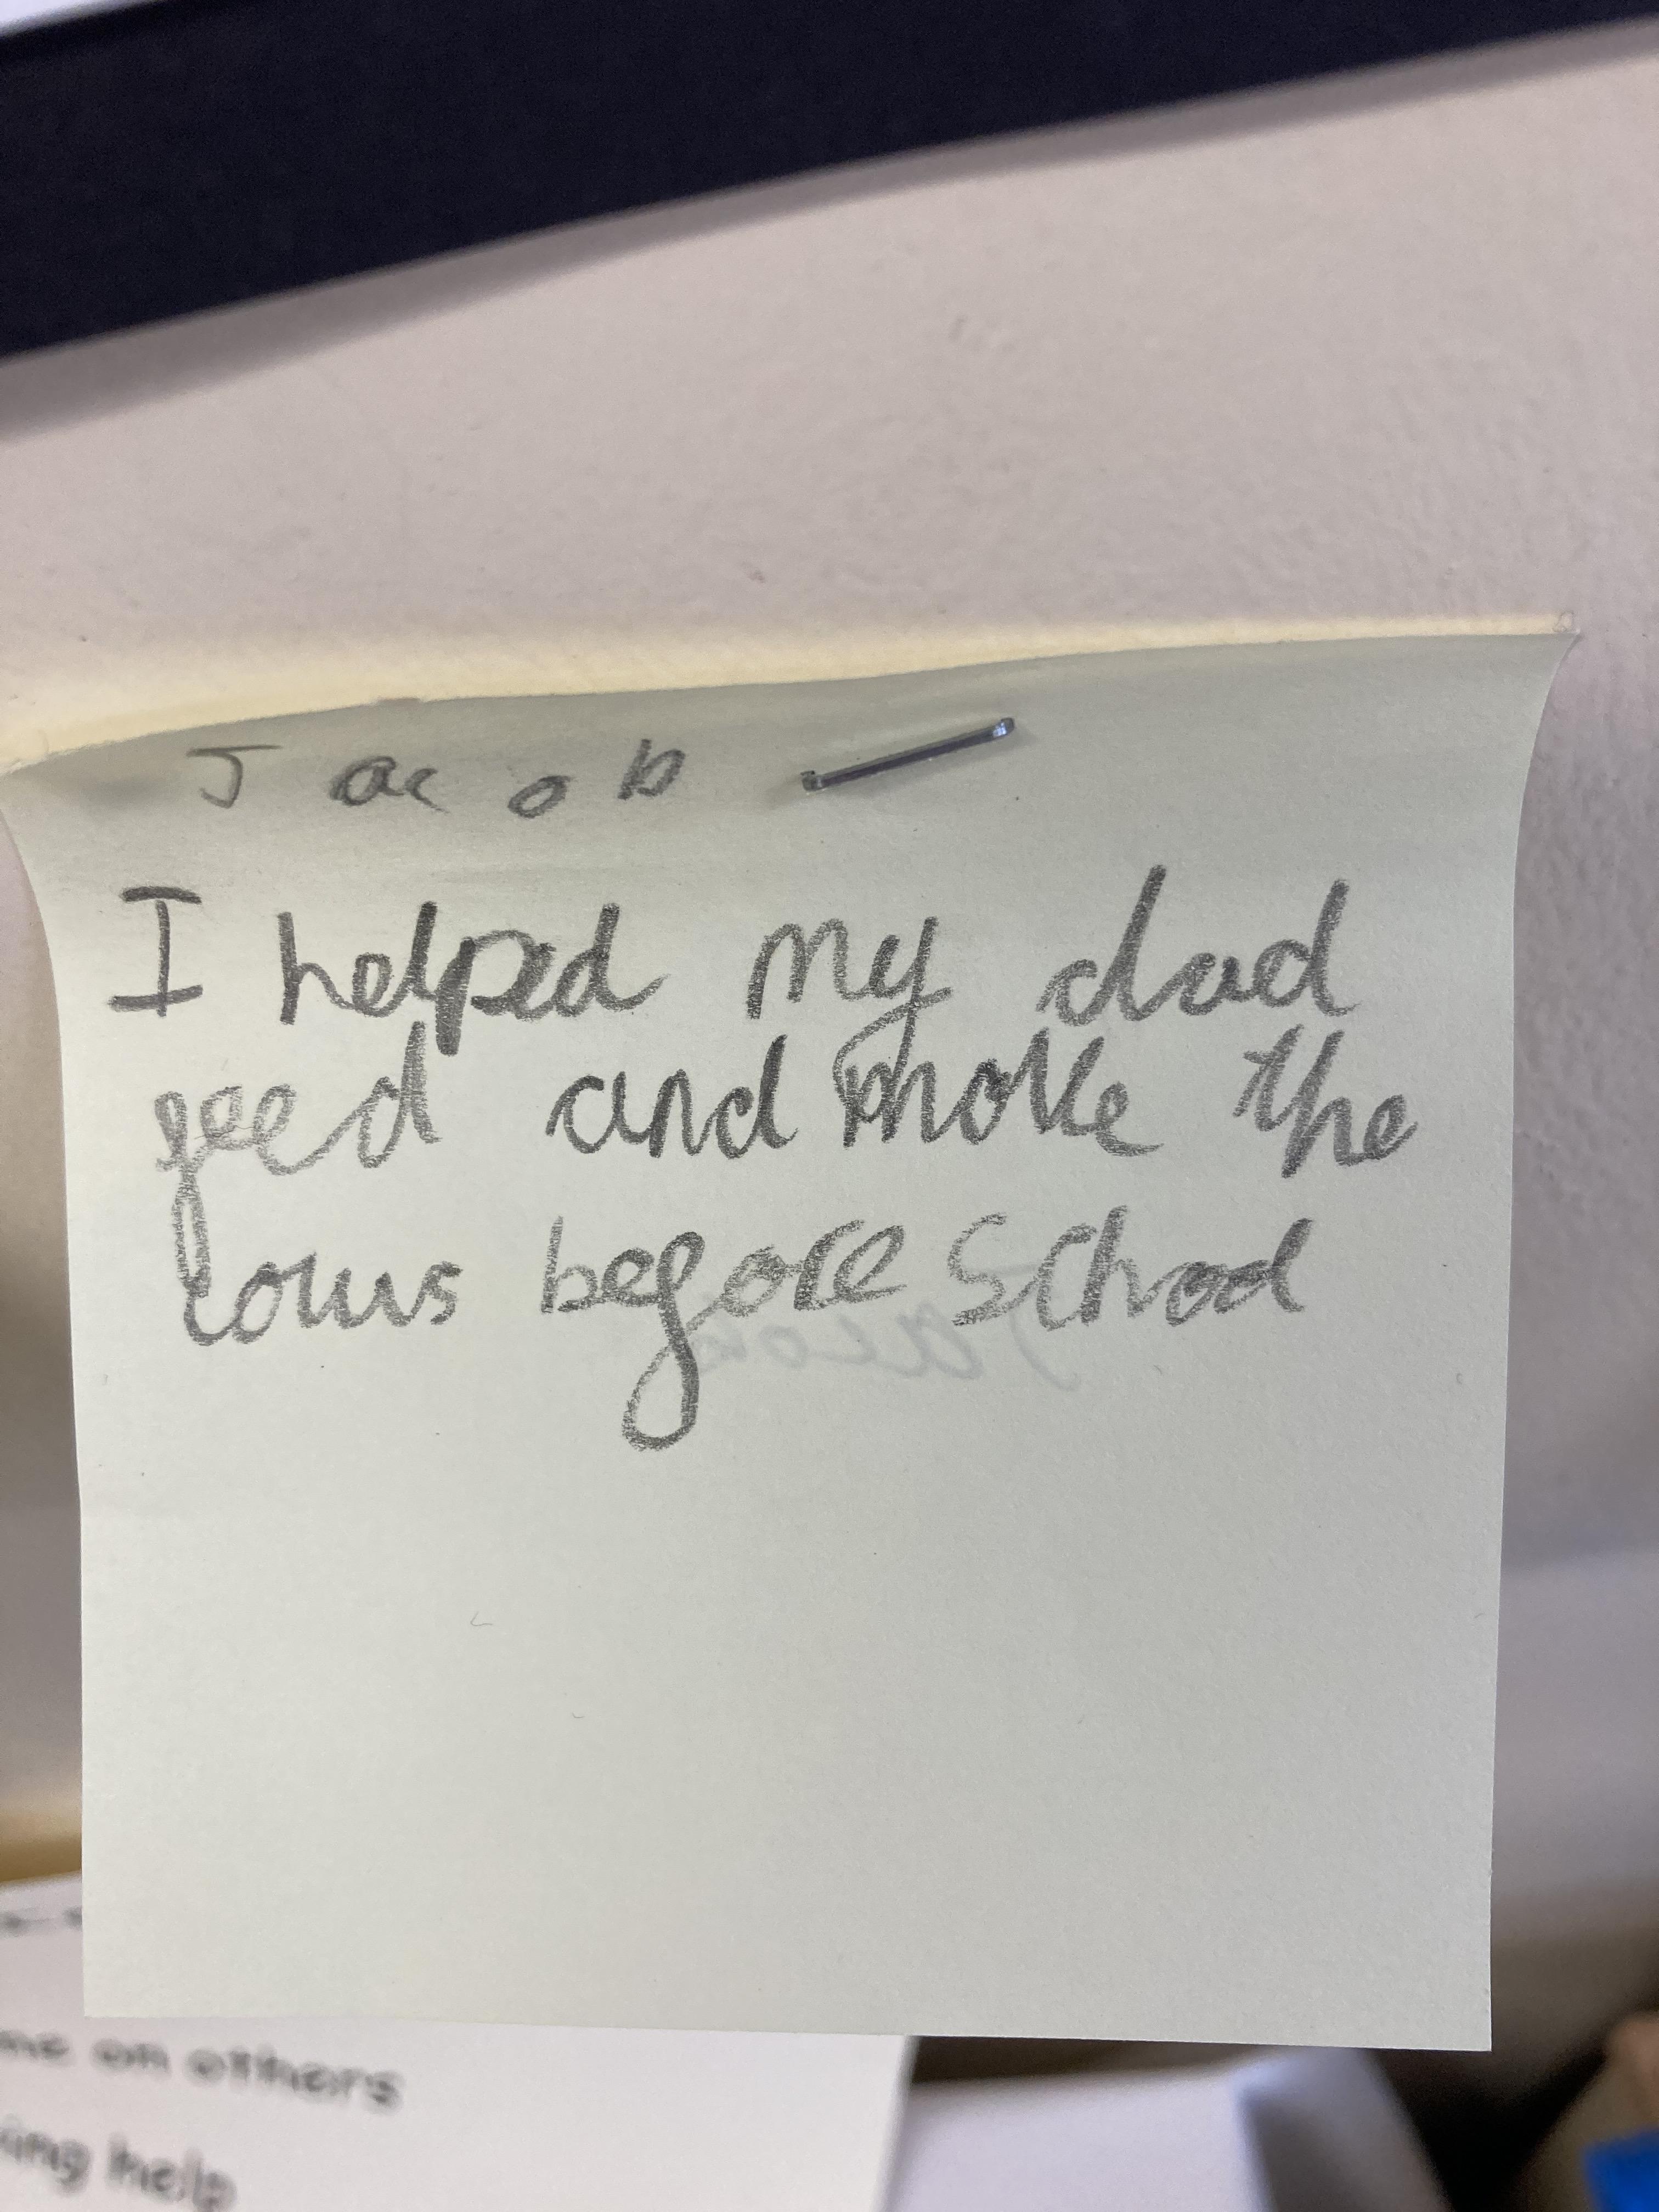 Jacob
I helped my dad
feed and move the
cows before school
Jacob
me on others
ing help